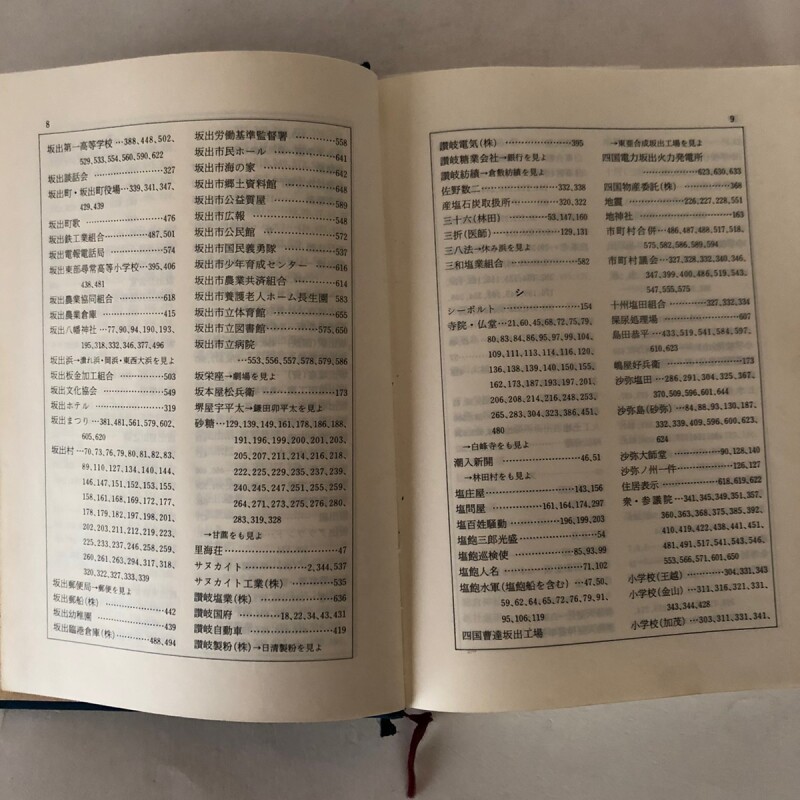 8
坂出第一高等学校…388,448,502,
529,533,554,560,590,622
坂出談話会…………327
坂出町・坂出町役場…339,341,347,
429,439
坂出町歌…………476
坂出鉄工業組合……487,501
坂出電報電話局…………574
坂出東部尋常高等小学校…395,406
438,481
坂出農業協同組合…………618
坂出農業倉庫…………415
坂出八幡神社…77,90,94,190,193,
195,318,332,346,377,496
坂出浜→潰れ浜・岡浜・東西大浜を見よ
坂出板金加工組合…………503
坂出文化協会…………549
坂出ホテル…………319
坂出まつり…381,481,561,579,602,
605,620
坂出村…70,73,76,79,80,81,82,83,
89,110,127,134,140,144,
146,147,151,152,153,155,
158,161,168,169,172,177,
178,179,182,197,198,201,
202,203,211,212,219,223,
225,233,237,246,258,259,
260,261,263,294,317,318,
320,322,327,333,339
坂出郵便局→郵便を見よ
坂出郵船(株)…………442
坂出幼稚園…………439
坂出臨港倉庫(株)………488,494
坂出労働基準監督署…………558
坂出市民ホール…………641
坂出市海の家…………642
坂出市郷土資料館…………648
坂出市公益質屋…………589
坂出市広報…………548
坂出市公民館…………572
坂出市国民義勇隊…………537
坂出市少年育成センター……616
坂出市農業共済組合…………614
坂出市養護老人ホーム長生園 583
坂出市立体育館…………655
坂出市立図書館………575,650
坂出市立病院
…553,556,557,578,579,586
坂栄座→劇場を見よ
坂本屋松兵衛…………173
堺屋宇平太→鎌田卯平太を見よ
砂糖…129,139,149,161,178,186,188,
191,196,199,200,201,203,
205,207,211,214,216,218,
222,225,229,235,237,239,
240,245,247,251,255,259,
264,271,273,275,276,280,
283,319,328
→甘蔗をも見よ
里海荘…………47
サヌカイト…………2,344,537
サヌカイト工業(株)………535
讃岐塩業(株)…………636
讃岐国府…………18,22,34,43,431
讃岐自動車…………419
讃岐製粉(株)→日清製粉を見よ
9
讃岐電気(株)…………395
讃岐糖業会社→銀行を見よ
讃岐紡績→倉敷紡績を見よ
佐野数二…………332,338
産塩石炭取扱所…………320,322
三十六(林田)…………53,147,160
三折(医師)…………129,131
三八法→休み浜を見よ
三和塩業組合…………582
シ
シーボルト…………154
寺院・仏堂…21,60,45,68,72,75,79,
80,83,84,86,95,97,99,104,
109,111,113,114,116,124,
136,138,139,140,150,155,
162,173,187,193,197,201,
206,208,214,216,248,253,
265,283,304,323,386,451,
480
→白峰寺をも見よ
潮入新開…………46,51
→林田村をも見よ
塩庄屋…………143,156
塩問屋…………161,164,174,297
塩百姓騒動…………196,199,203
塩飽三郎光盛…………54
塩飽巡検使…………85,93,99
塩飽人名…………71,102
塩飽水軍(塩飽船を含む)…47,50,
59,62,64,65,72,76,79,91,
95,106,119
四国曹達坂出工場
→東亜合成坂出工場を見よ
四国電力坂出火力発電所
…………623,630,633
四国物産委託(株)…………368
地震…………226,227,228,551
地神社…………163
市町村合併…486,487,488,517,518,
575,582,586,589,594
市町村議会…327,328,332,340,346,
347,399,400,486,519,543,
547,555,575
十州塩田組合………327,332,334
屎尿処理場…………607
島田恭平…433,519,541,584,597,
610,623
嶋屋好兵衛…………173
沙弥塩田…286,291,304,325,367,
370,509,596,601,644
沙弥島(砂弥)…84,88,93,130,187,
332,339,409,596,600,623,
624
沙弥大師堂…………90,128,140
沙弥ノ州一件…………126,127
住居表示…………618,619,622
衆・参議院…341,345,349,351,357,
360,363,368,375,385,392,
410,419,422,438,441,451,
481,491,517,541,543,546,
553,566,571,601,650
小学校(王越)………304,331,343
小学校(金山)…311,316,321,331,
343,344,428
小学校(加茂)…303,311,331,341,